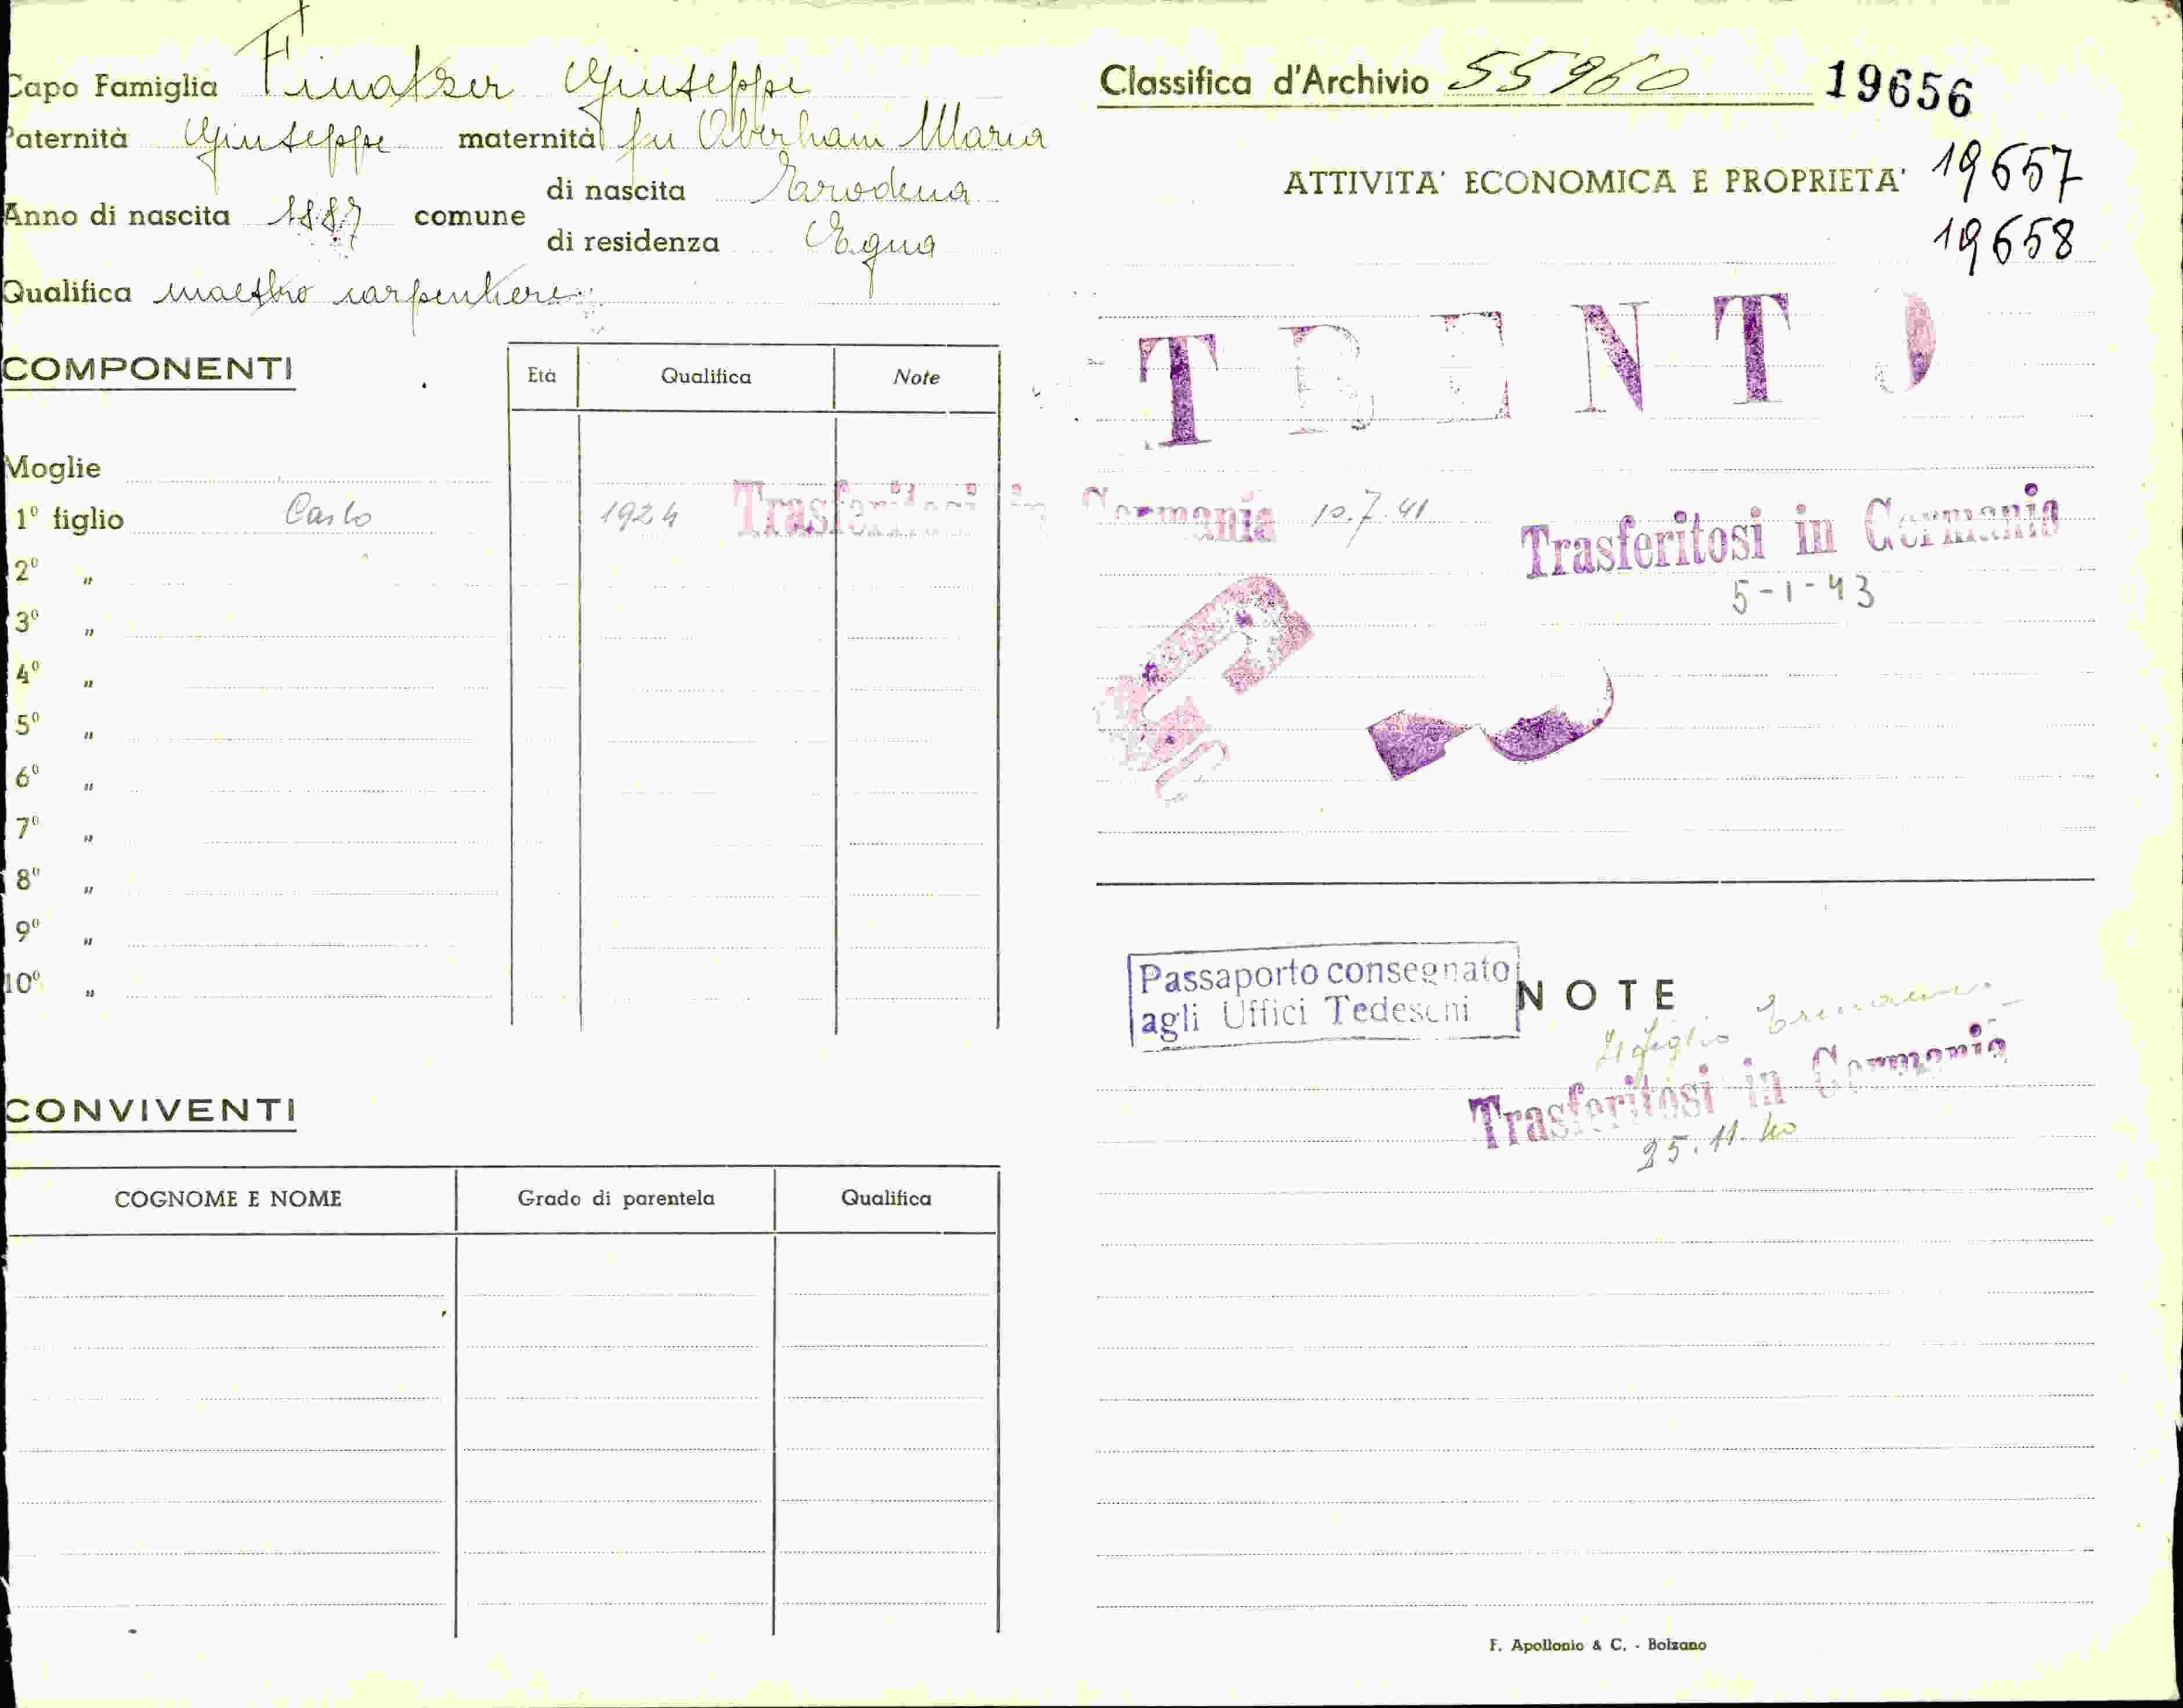 Capo Famiglia Finatzer Giuseppe
Paternità Giuseppe maternità fu Oberham Maria
di nascita
Anno di nascita 1887 comune
di residenza Egna
Qualifica maestro carpentiere
COMPONENTI
Età Qualifica Note
Moglie
1º figlio Carlo 1924 Trasferitosi in Germania 10.7.41
2º "
3º "
4º "
5º "
6º "
7º "
8º "
9º "
10º "
CONVIVENTI
COGNOME E NOME Grado di parentela Qualifica
Classifica d'Archivio 55960 19656
ATTIVITA' ECONOMICA E PROPRIETA' 19657
19658
TRENTO
Trasferitosi in Germania
5-1-43
Passaporto consegnato
agli Uffici Tedeschi
NOTE
Il figlio
Trasferitosi in Germania
25.11.40
F. Apollonio & C. - Bolzano